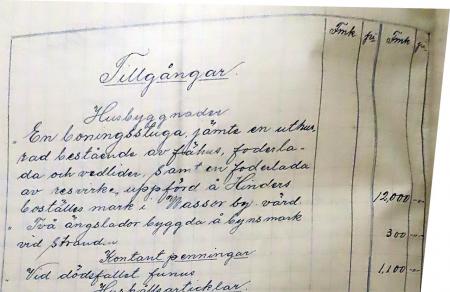 Fmk pi Fmk pi
Tillgångar.
Husbyggnader
"En boningsstuga, jämte en uthus
rad bestående av fähus, foderla-
da och vedlider, samt en foderlada
av resvirke, uppförd å Hinders
boställes mark i Wassor by, värd 12,000 -"-
"Två ängslador byggda å bynsmark
vid stranden 300 -"-
Kontant penningar
"Vid dödsfallet funns 1,100 -"-
Hushållsarticklar.